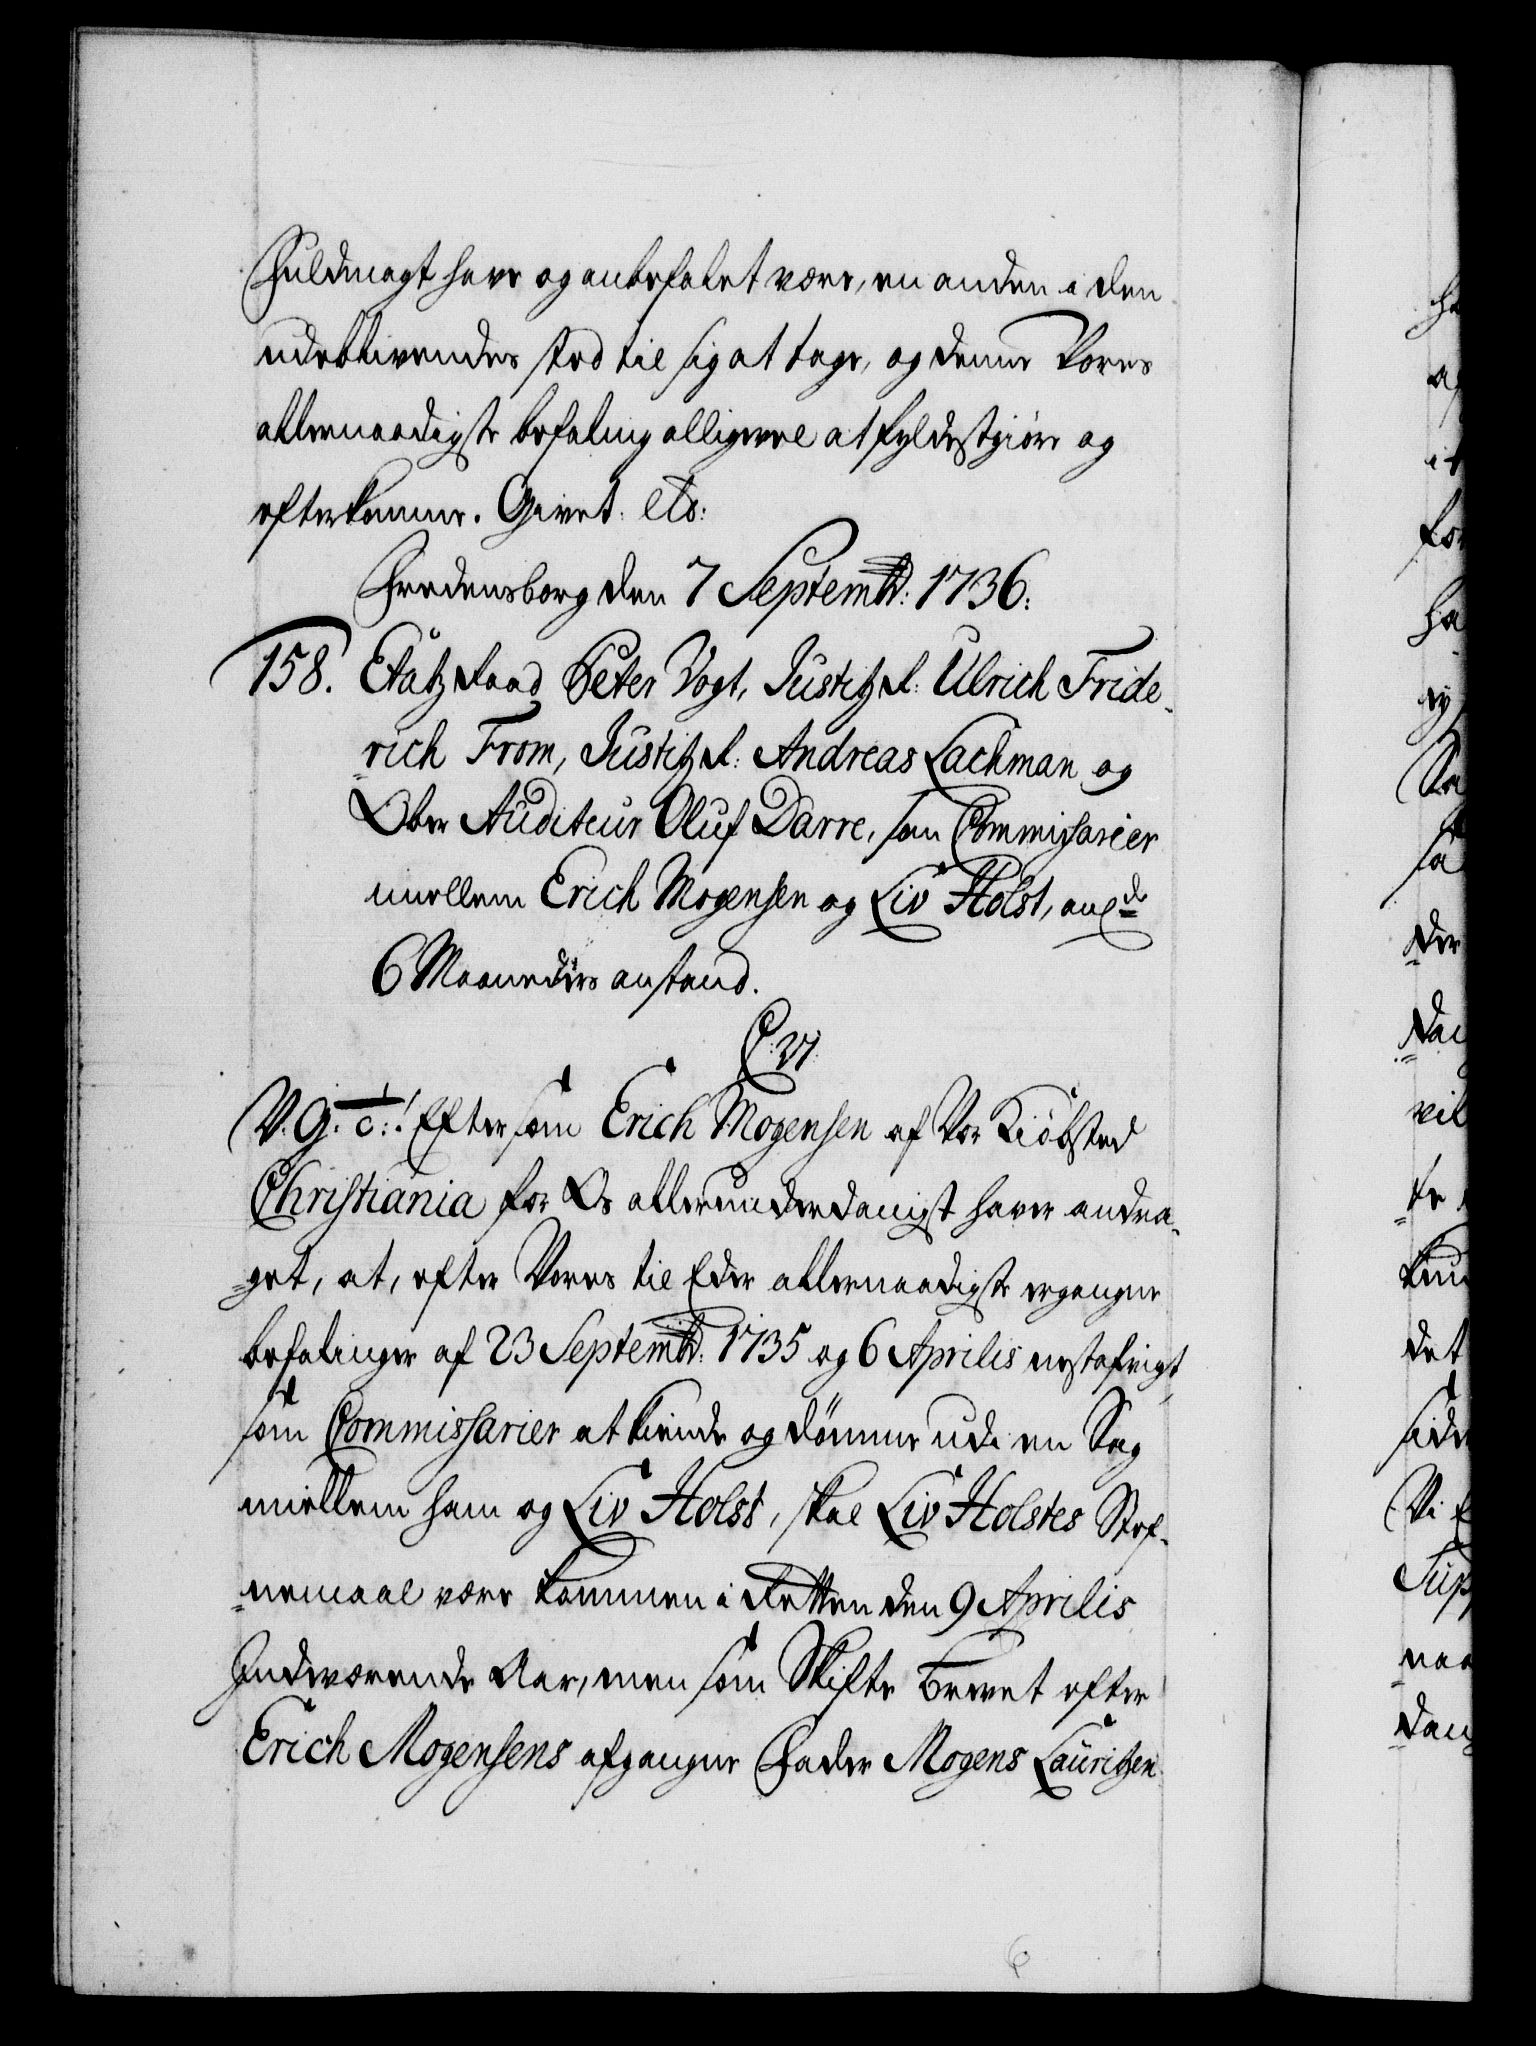 Fuldmagt have og anbefalet være, en anden i den
udeblivendes sted til sig at tage, og denne Vores
allernaadigste befaling alligevel at fyldestgiøre og
efterkomme. Givet. etc:
Fredensborg den 7 Septembr: 1736:
158. Etätz Raad Peter Vogt, Justitz R: Ulrich Fride-
rich From, Justitz R: Andreas Lachman og
Ober Auditeur Oluf Darre, som Commissarier
imellem Erich Mogensen og Liv Holst, ang:de
6 Maaneders anstand.
C. VI.
V. G. c:! Eftersom Erich Mogensen af Vor Kiøbsted
Christiania for Os allerunderdanigst haver andra-
get, at, efter Vores til Eder allernaadigste ergangne
befalinger af 23 Septembr: 1735 og 6 Aprilis nestafvigt,
som Commissarier at kiende og dømme udi en Sag
mellem ham og Liv Holst, skal Liv Holstes Stef-
nemaal være kommen i Retten den 9 Aprilis
Indeværende Aar, men som Skifte Brevet efter
Erich Mogensens afgangne Fader Mogens Lauritzen